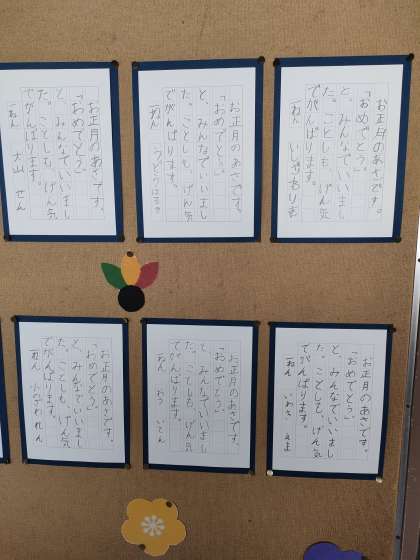 お正月のあさです。
「おめでとう」
と、みんなでいいまし
た。ことしも、げん気
でがんばります。
一ねん
お正月のあさです。
「おめでとう」
と、みんなでいいまし
た。ことしも、げん気
でがんばります。
一ねん
お正月のあさです。
「おめでとう」
と、みんなでいいまし
た。ことしも、げん気
でがんばります。
一ねん 大山 せん
お正月のあさです。
「おめでとう」
と、みんなでいいまし
た。ことしも、げん気
でがんばります。
一ねん いわさ えま
お正月のあさです。
「おめでとう」
と、みんなでいいまし
た。ことしも、げん気
でがんばります。
一ねん
お正月のあさです。
「おめでとう」
と、みんなでいいまし
た。ことしも、げん気
でがんばります。
一ねん 小ざわ れん